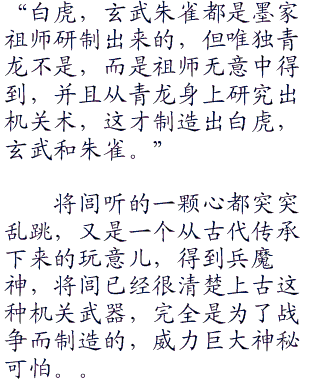 “白虎，玄武朱雀都是墨家
祖师研制出来的，但唯独青
龙不是，而是祖师无意中得
到，并且从青龙身上研究出
机关术，这才制造出白虎，
玄武和朱雀。”
将闾听的一颗心都突突
乱跳，又是一个从古代传承
下来的玩意儿，得到兵魔
神，将闾已经很清楚上古这
种机关武器，完全是为了战
争而制造的，威力巨大神秘
可怕。。